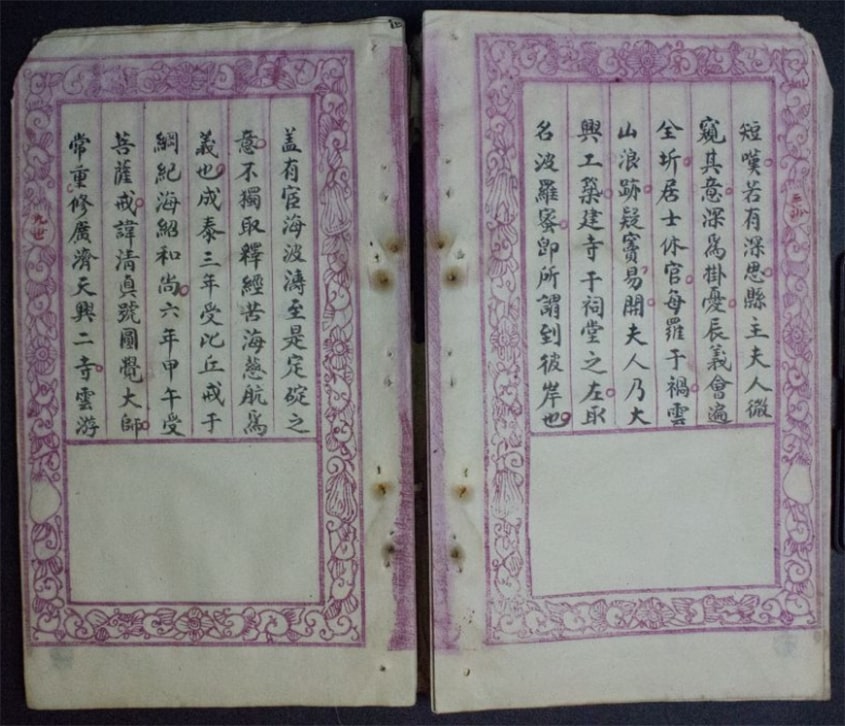 短嘆若有深思縣主夫人微
窺其意深爲掛憂辰義會遍
全圻居士休官每羅于禍雲
山浪跡疑竇易開夫人乃大
興工築建寺于祠堂之左取
名波羅蜜即所謂到彼岸也
盖有宦海波濤至是定碇之
意不獨取釋經苦海慈航爲
義也成泰三年受比丘戒于
綱紀海紹和尚六年甲午受
菩薩戒諱清真號圓覺大師
常重修廣濟天興二寺雲游
九世